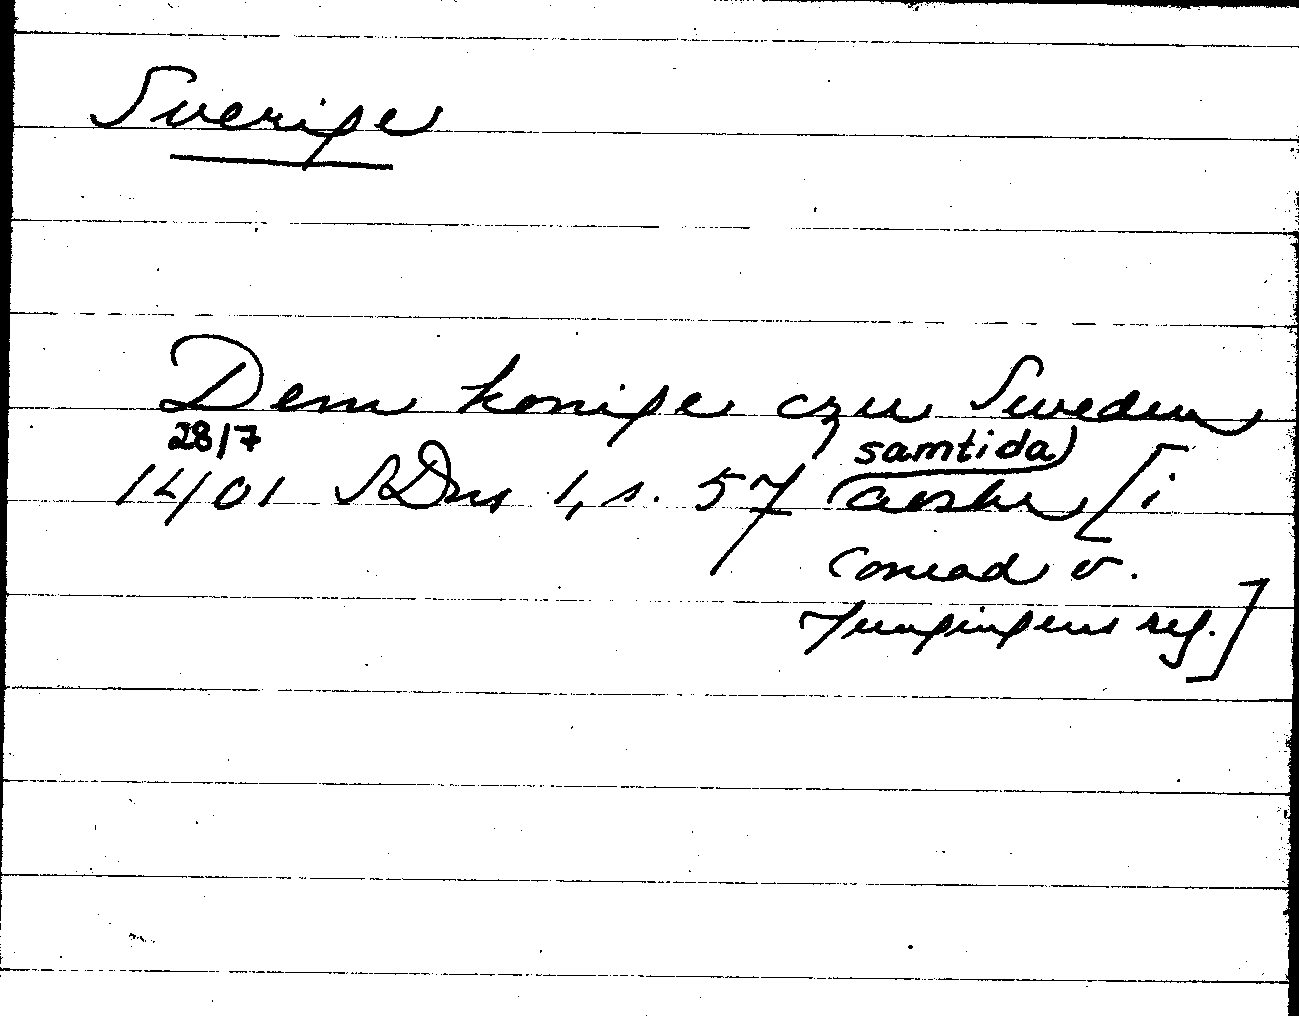 Sverige
Dem konige czu Sweden
28/7 samtida)
1401 SDns 1, s. 57 (avskr [i
Conrad v.
Jungingens reg.]